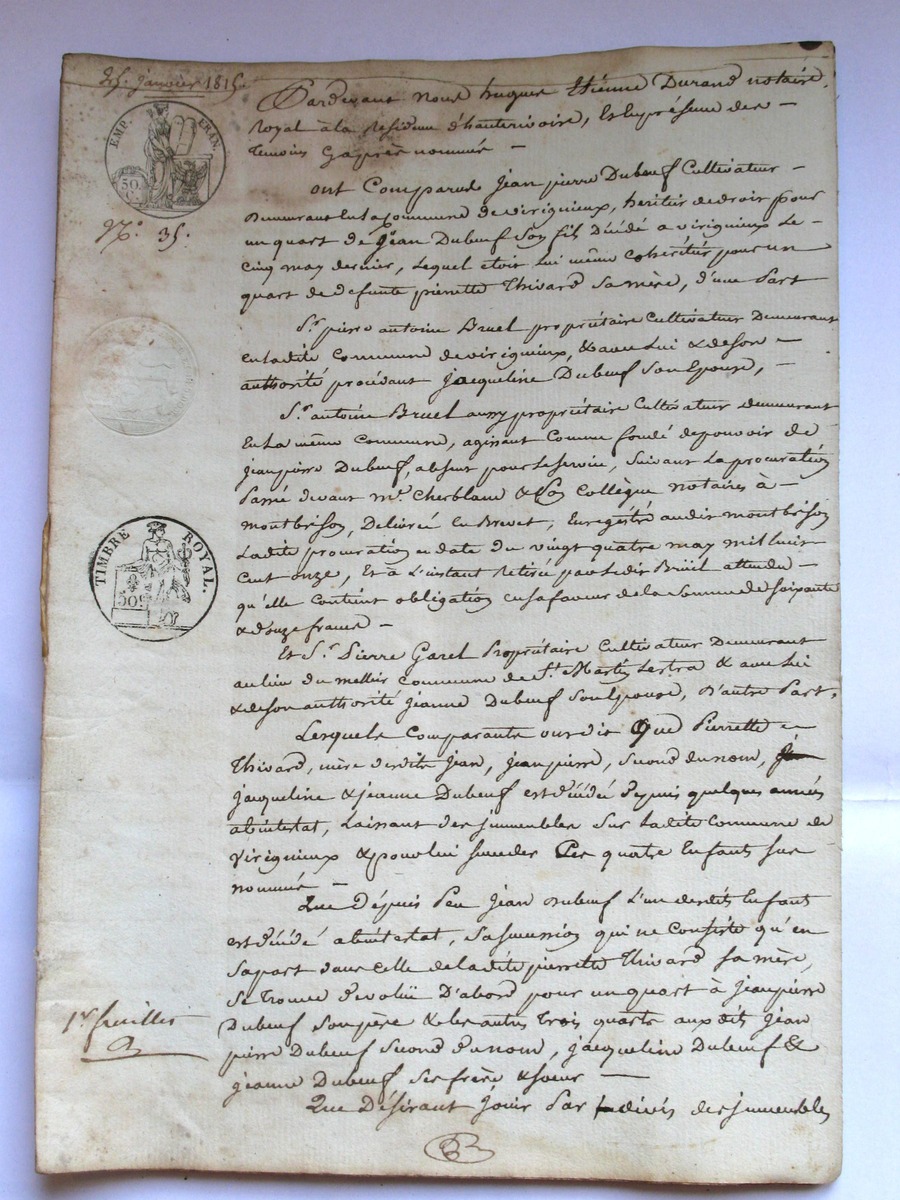 25. janvier 1815.
EMP. FRAN.
50
N.° 35.
TIMBRE ROYAL.
50
Pardevant nous hugues Etienne Durand notaire
Royal à la Residence d'hauterivoire, Et En présence des
temoins Cy après nommés
ont Comparus Jean pierre Dubeuf Cultivateur
Demeurant En la Commune de virigneux, heritier de droit pour
un quart de Jean Dubeuf Son fils Décédé a virigneux Le
Cinq may dernier, Lequel etoit Lui même Cohéritier pour un
quart de defunte pierrette Thivard Sa mère, d'une Part
S.r pierre antoine Bruel propriétaire Cultivateur Demeurant
en ladite Commune de virigneux, & avec Lui & de son
authorité procédant Jacqueline Dubeuf Son Epouse,
S.r antoine Bruel aussy propriétaire Cultivateur demeurant
En La même Commune, agissant Comme fondé de pouvoir de
Jean pierre Dubeuf, absent pour Le Service, Suivant La procuration
Passée devant m.e Cherblanc & Son Collègue notaires à
montbrison, Délivrée En Brevet, Enregistré audit montbrison
Ladite procuration en date du vingt quatre may mil huit
Cent onze, Et à L'instant Retirée par Ledit Brüel attendu
qu'elle Contient obligation en sa faveur de la Somme de Soixante
& douze francs
Et S.r Pierre Garel Propriétaire Cultivateur Demeurant
au lieu du mellier Commune de S.t Martin Lestra & avec Lui
& de son authorité Jeanne Dubeuf Son Epouse, D'autre Part.
Lesquels Comparants ont dit Que Pierrette
Thivard, mère desdits Jean, Jean pierre, Second du nom,
Jacqueline & Jeanne Dubeuf est décédée depuis quelques années
abintestat, Laissant des immeubles Sur Ladite Commune de
Virigneux & pour lui succeder Ses quatre Enfants sus
nommés
Que Dépuis Peu Jean Dubeuf L'un desdits Enfants
est décédé abintestat, Sa succession qui ne Consiste qu'en
Sa part dans celle de ladite pierrette Thivard Sa mère,
Se trouve dévolüe D'abord pour un quart à Jean pierre
Dubeuf Son père & les autres trois quarts auxdits Jean
pierre Dubeuf Second du nom, Jacqueline Dubeuf &
Jeanne Dubeuf Ses frère & soeurs
Que Désirant Jouir Par divis des immeubles
1.r feuillet